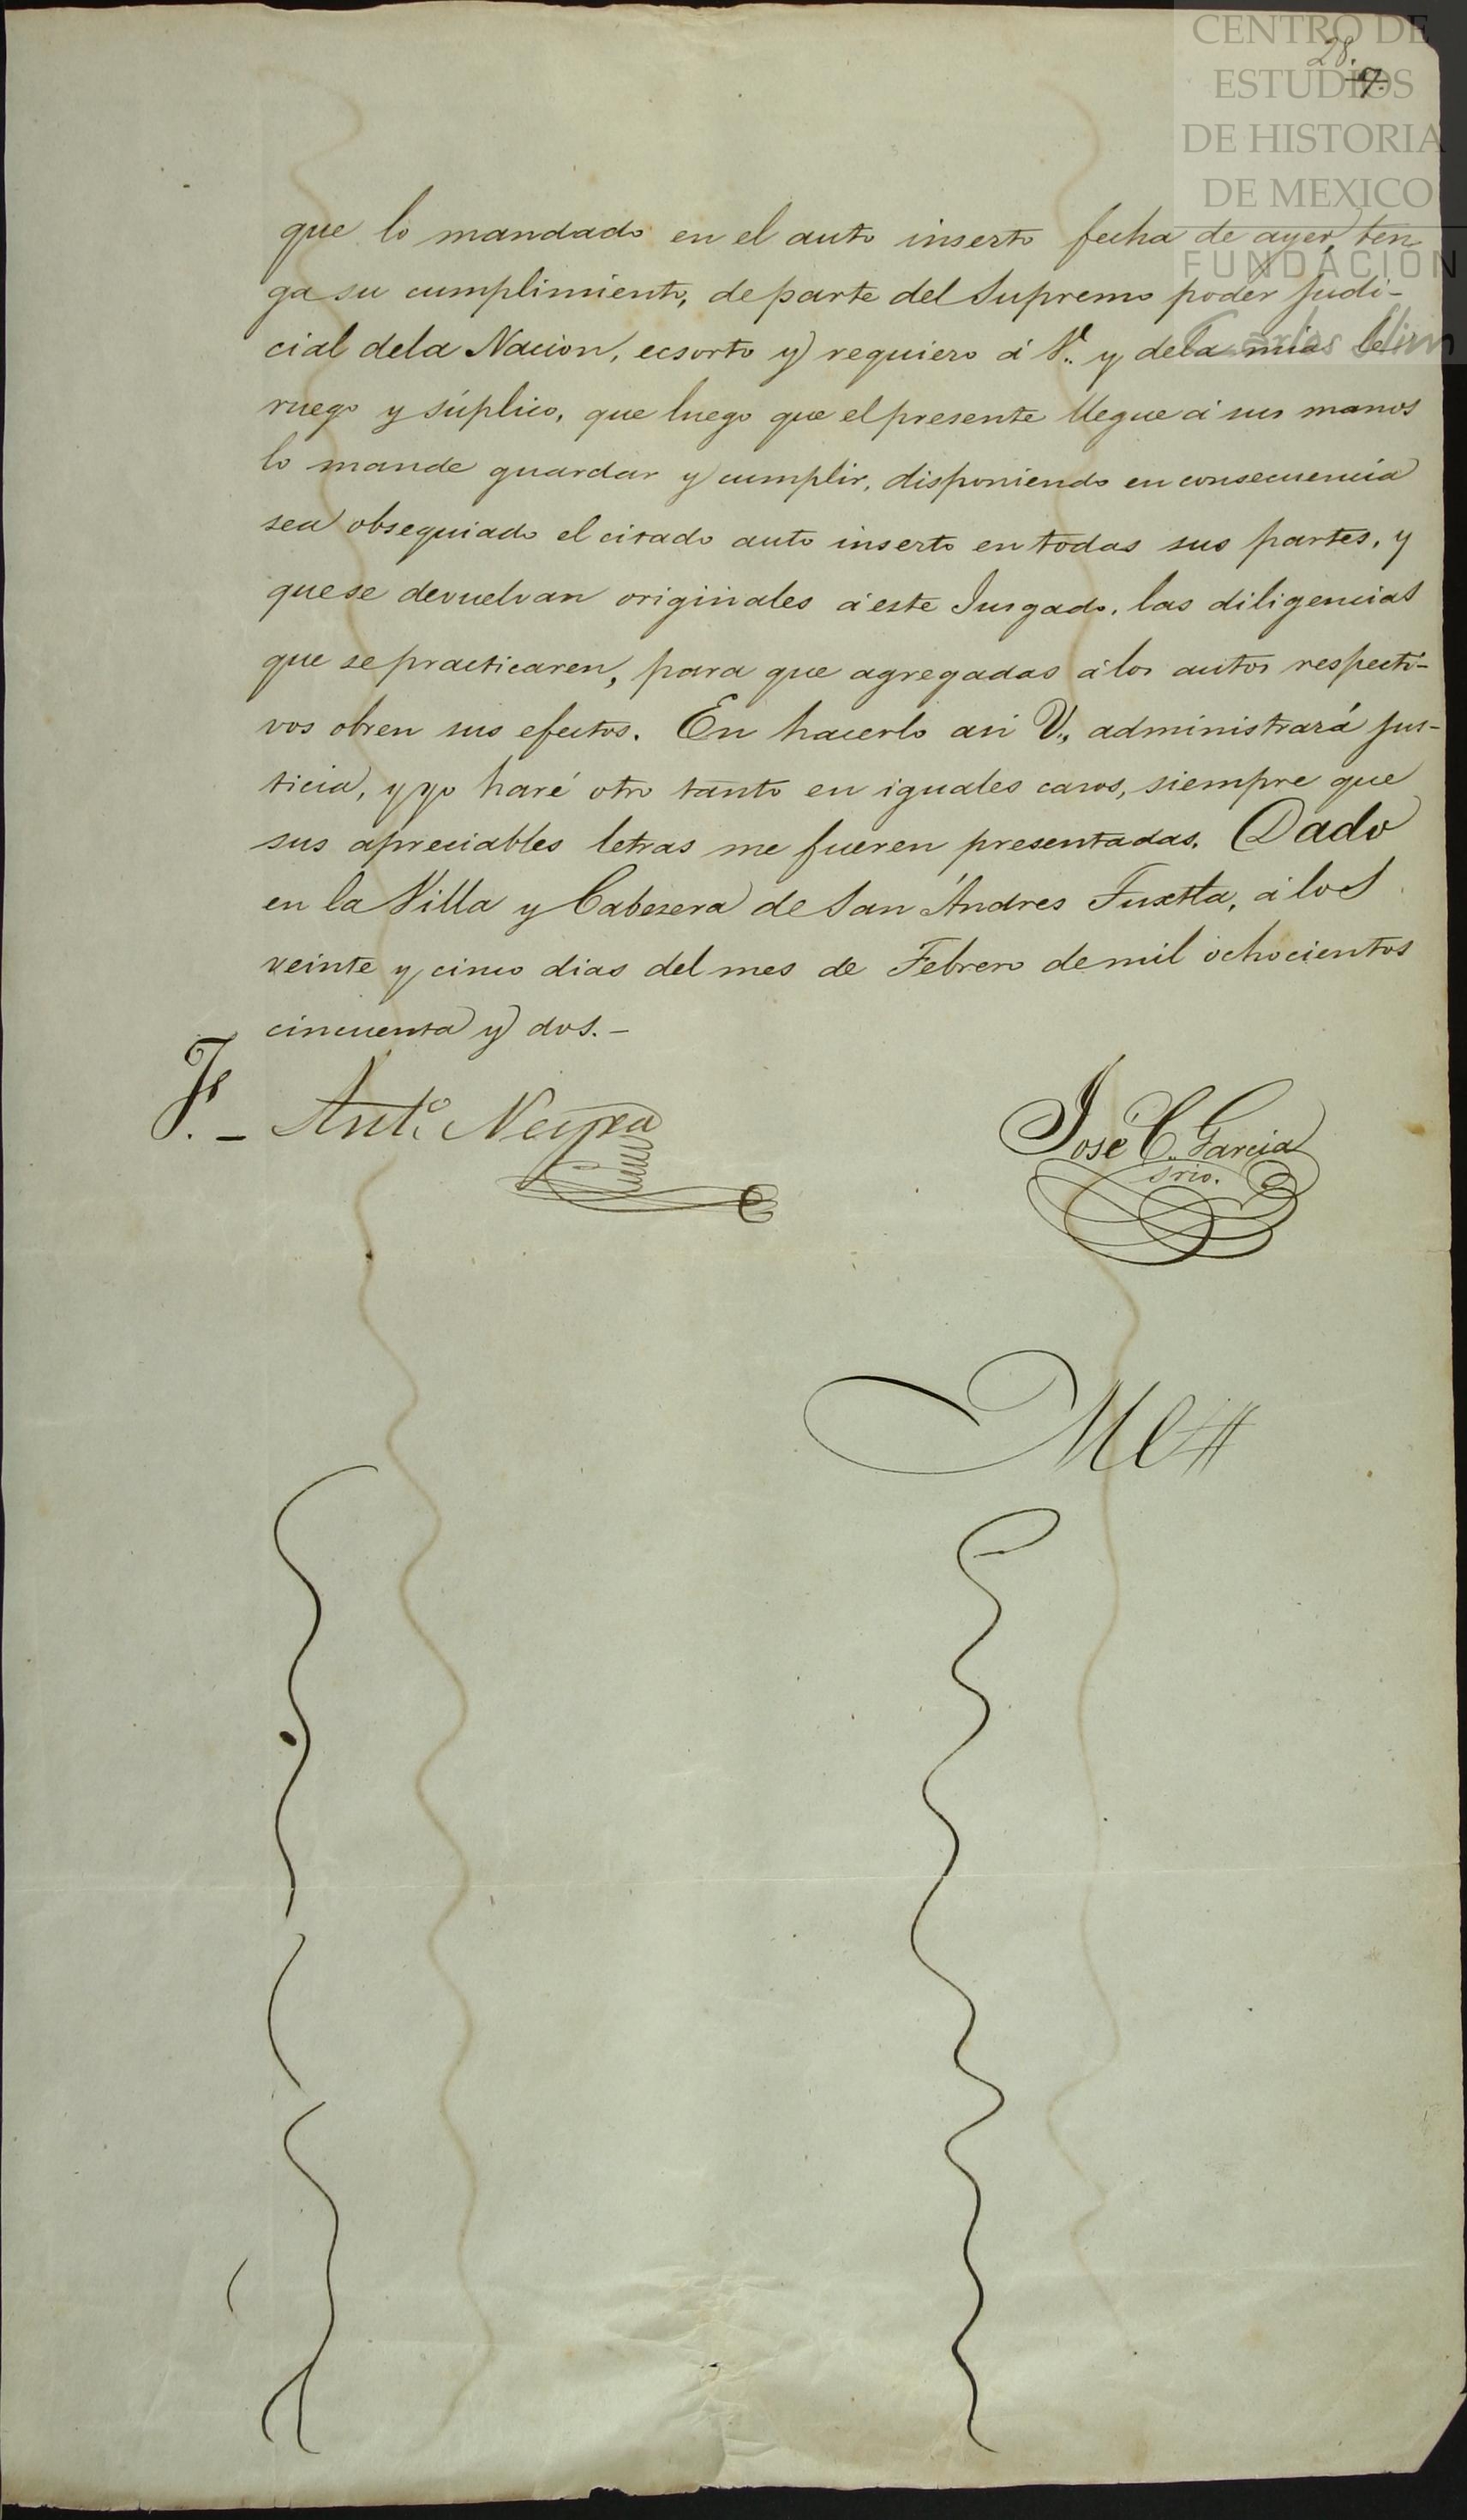 CENTRO DE
ESTUDIOS
DE HISTORIA
DE MEXICO
FUNDACIÓN
Carlos Slim
28.
9.
que lo mandado en el auto inserto fecha de ayer, ten
ga su cumplimiento, de parte del Supremo poder judi-
cial dela Nacion, ecsorto y requiero á V. y dela mia le
ruego y súplico, que luego que el presente llegue á sus manos
lo mande guardar y cumplir, disponiendo en consecuencia
sea obsequiado el citado auto inserto en todas sus partes, y
que se devuelvan originales á este Jusgado, las diligencias
que se practicaren, para que agregadas á los autos respecti-
vos obren sus efectos. En hacerlo asi V., administrará jus-
ticia, y yo haré otro tanto en iguales casos, siempre que
sus apreciables letras me fueren presentadas. Dado
en la Villa y Cabezera de San Andres Tuxtla, á los
veinte y cinco dias del mes de Febrero de mil ochocientos
cincuenta y dos.-
Anto. Neyra
José C. Garcia
srio.